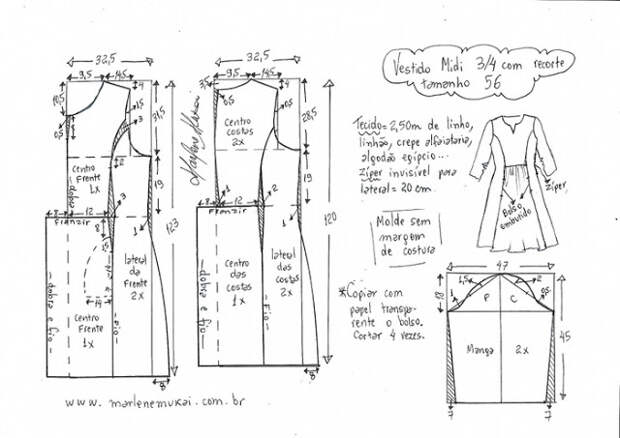 Vestido Midi 3/4 com recorte
tamanho 56
Tecido = 2,50m de linho,
linhão, crepe alfaiataria,
algodão egípcio...
Zíper invisível para
lateral = 20 cm.
Molde sem
margem
de costura
*Copiar com
papel transpa-
rente o bolso.
Cortar 4 vezes.
Bolso
embutido
Zíper
32,5
9,5
14,5
4
10,5
0,5
1,5
3
31,5
2
Centro
Frente
1x
dobra
19
3
8
12
Franzir
1
8
2,5
123
14
Centro
Frente
1x
lateral
da
Frente
2x
dobra e fio
fio
8
32,5
9,5
14,5
3,5
4
0,5
28,5
Centro
costas
2x
19
1
3
8
12
Franzir
1
120
Centro
das
costas
1x
lateral
das
costas
2x
dobra e fio
Fio
8
47
18
1,5
2
1
0,5
P
C
45
Manga
2x
7
7
www.marlenemukai.com.br